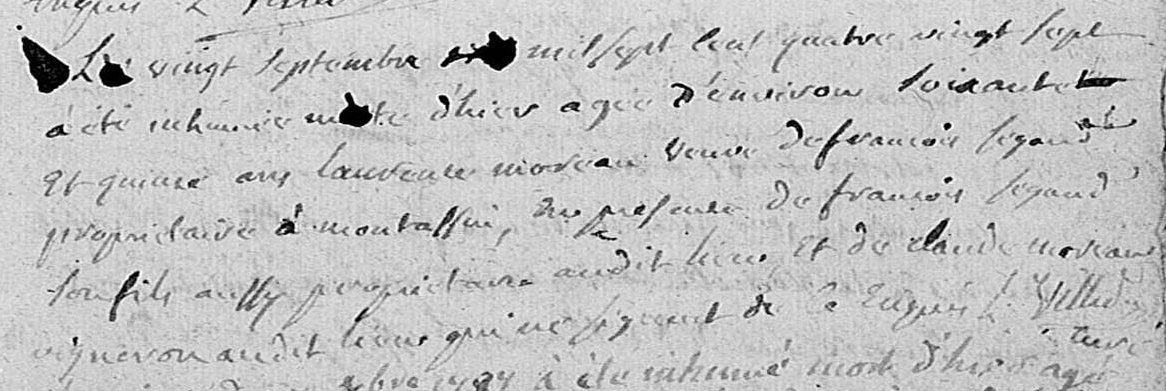 enquis
Le vingt septembre mil sept cent quatre vingt sept
a été inhumée morte d'hier agée d'environ soixante
et quinze ans laurence moreau veuve de francois segaud
propriétaire à montassin, en presence de francois segaud
son fils aussy proprietaire audit lieu, et de claude moreau
vigneron audit lieu qui ne signent de ce enquis
curé
bre 1787 à été inhumé mort d'hier agé